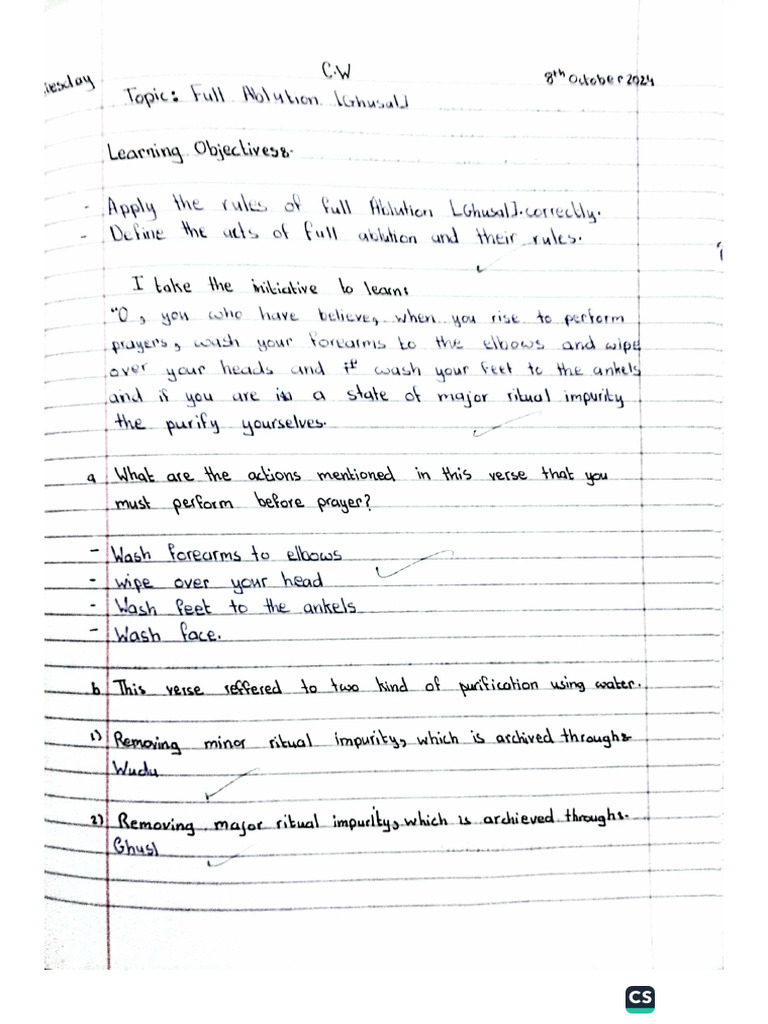 C.W
iesday
8th October 2024
Topic: Full Ablution [Ghusal]
Learning Objectives:-
- Apply the rules of full Ablution [Ghusal]. correctly.
- Define the acts of full ablution and their rules.
I take the initiative to learn:
"O, you who have believe, when you rise to perform
prayers, wash your forearms to the elbows and wipe
over your heads and wash your feet to the ankels
and if you are in a state of major ritual impurity
the purify yourselves.
a What are the actions mentioned in this verse that you
must perform before prayer?
- Wash forearms to elbows
- wipe over your head
- Wash feet to the ankels
- Wash face.
b This verse reffered to two kind of purification using water.
1) Removing minor ritual impurity, which is archived through:-
Wudu
2) Removing major ritual impurity, which is archieved through:-
Ghusl
CS